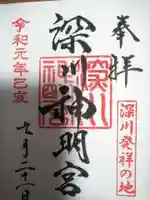 奉拝
深川発祥の地
深川神明宮
令和元年己亥
九月二十一日